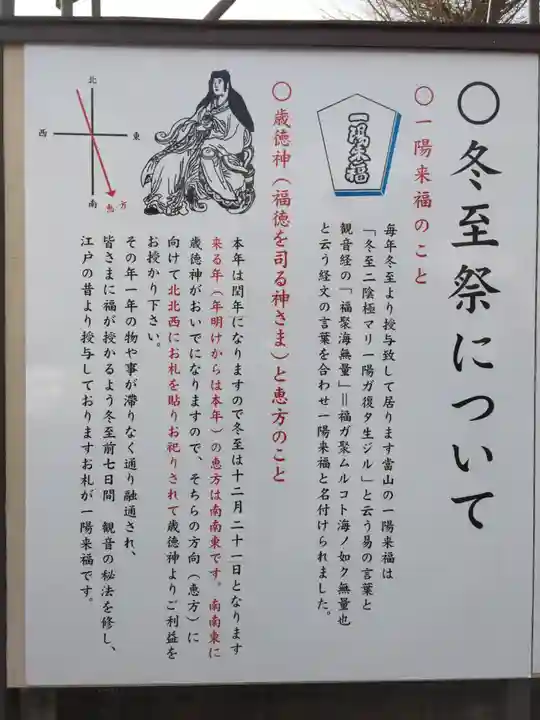 〇冬至祭について
〇一陽来福のこと
毎年冬至より授与致して居ります當山の一陽来福は
「冬至ニ陰極マリ一陽ガ復タ生ジル」と云う易の言葉と
観音経の「福聚海無量」＝福ガ聚ムルコト海ノ如ク無量也
と云う経文の言葉を合わせ一陽来福と名付けられました。
一陽来福
〇歳徳神（福徳を司る神さま）と恵方のこと
本年は閏年になりますので冬至は十二月二十一日となります
来る年（年明けからは本年）の恵方は南南東です。南南東に
歳徳神がおいでになりますので、そちらの方向（恵方）に
向けて北北西にお札を貼りお祀りされて歳徳神よりご利益を
お授かり下さい。
その年一年の物や事が滞りなく通り融通され、
皆さまに福が授かるよう冬至前七日間　観音の秘法を修し、
江戸の昔より授与しておりますお札が一陽来福です。
北
西
東
南
恵方